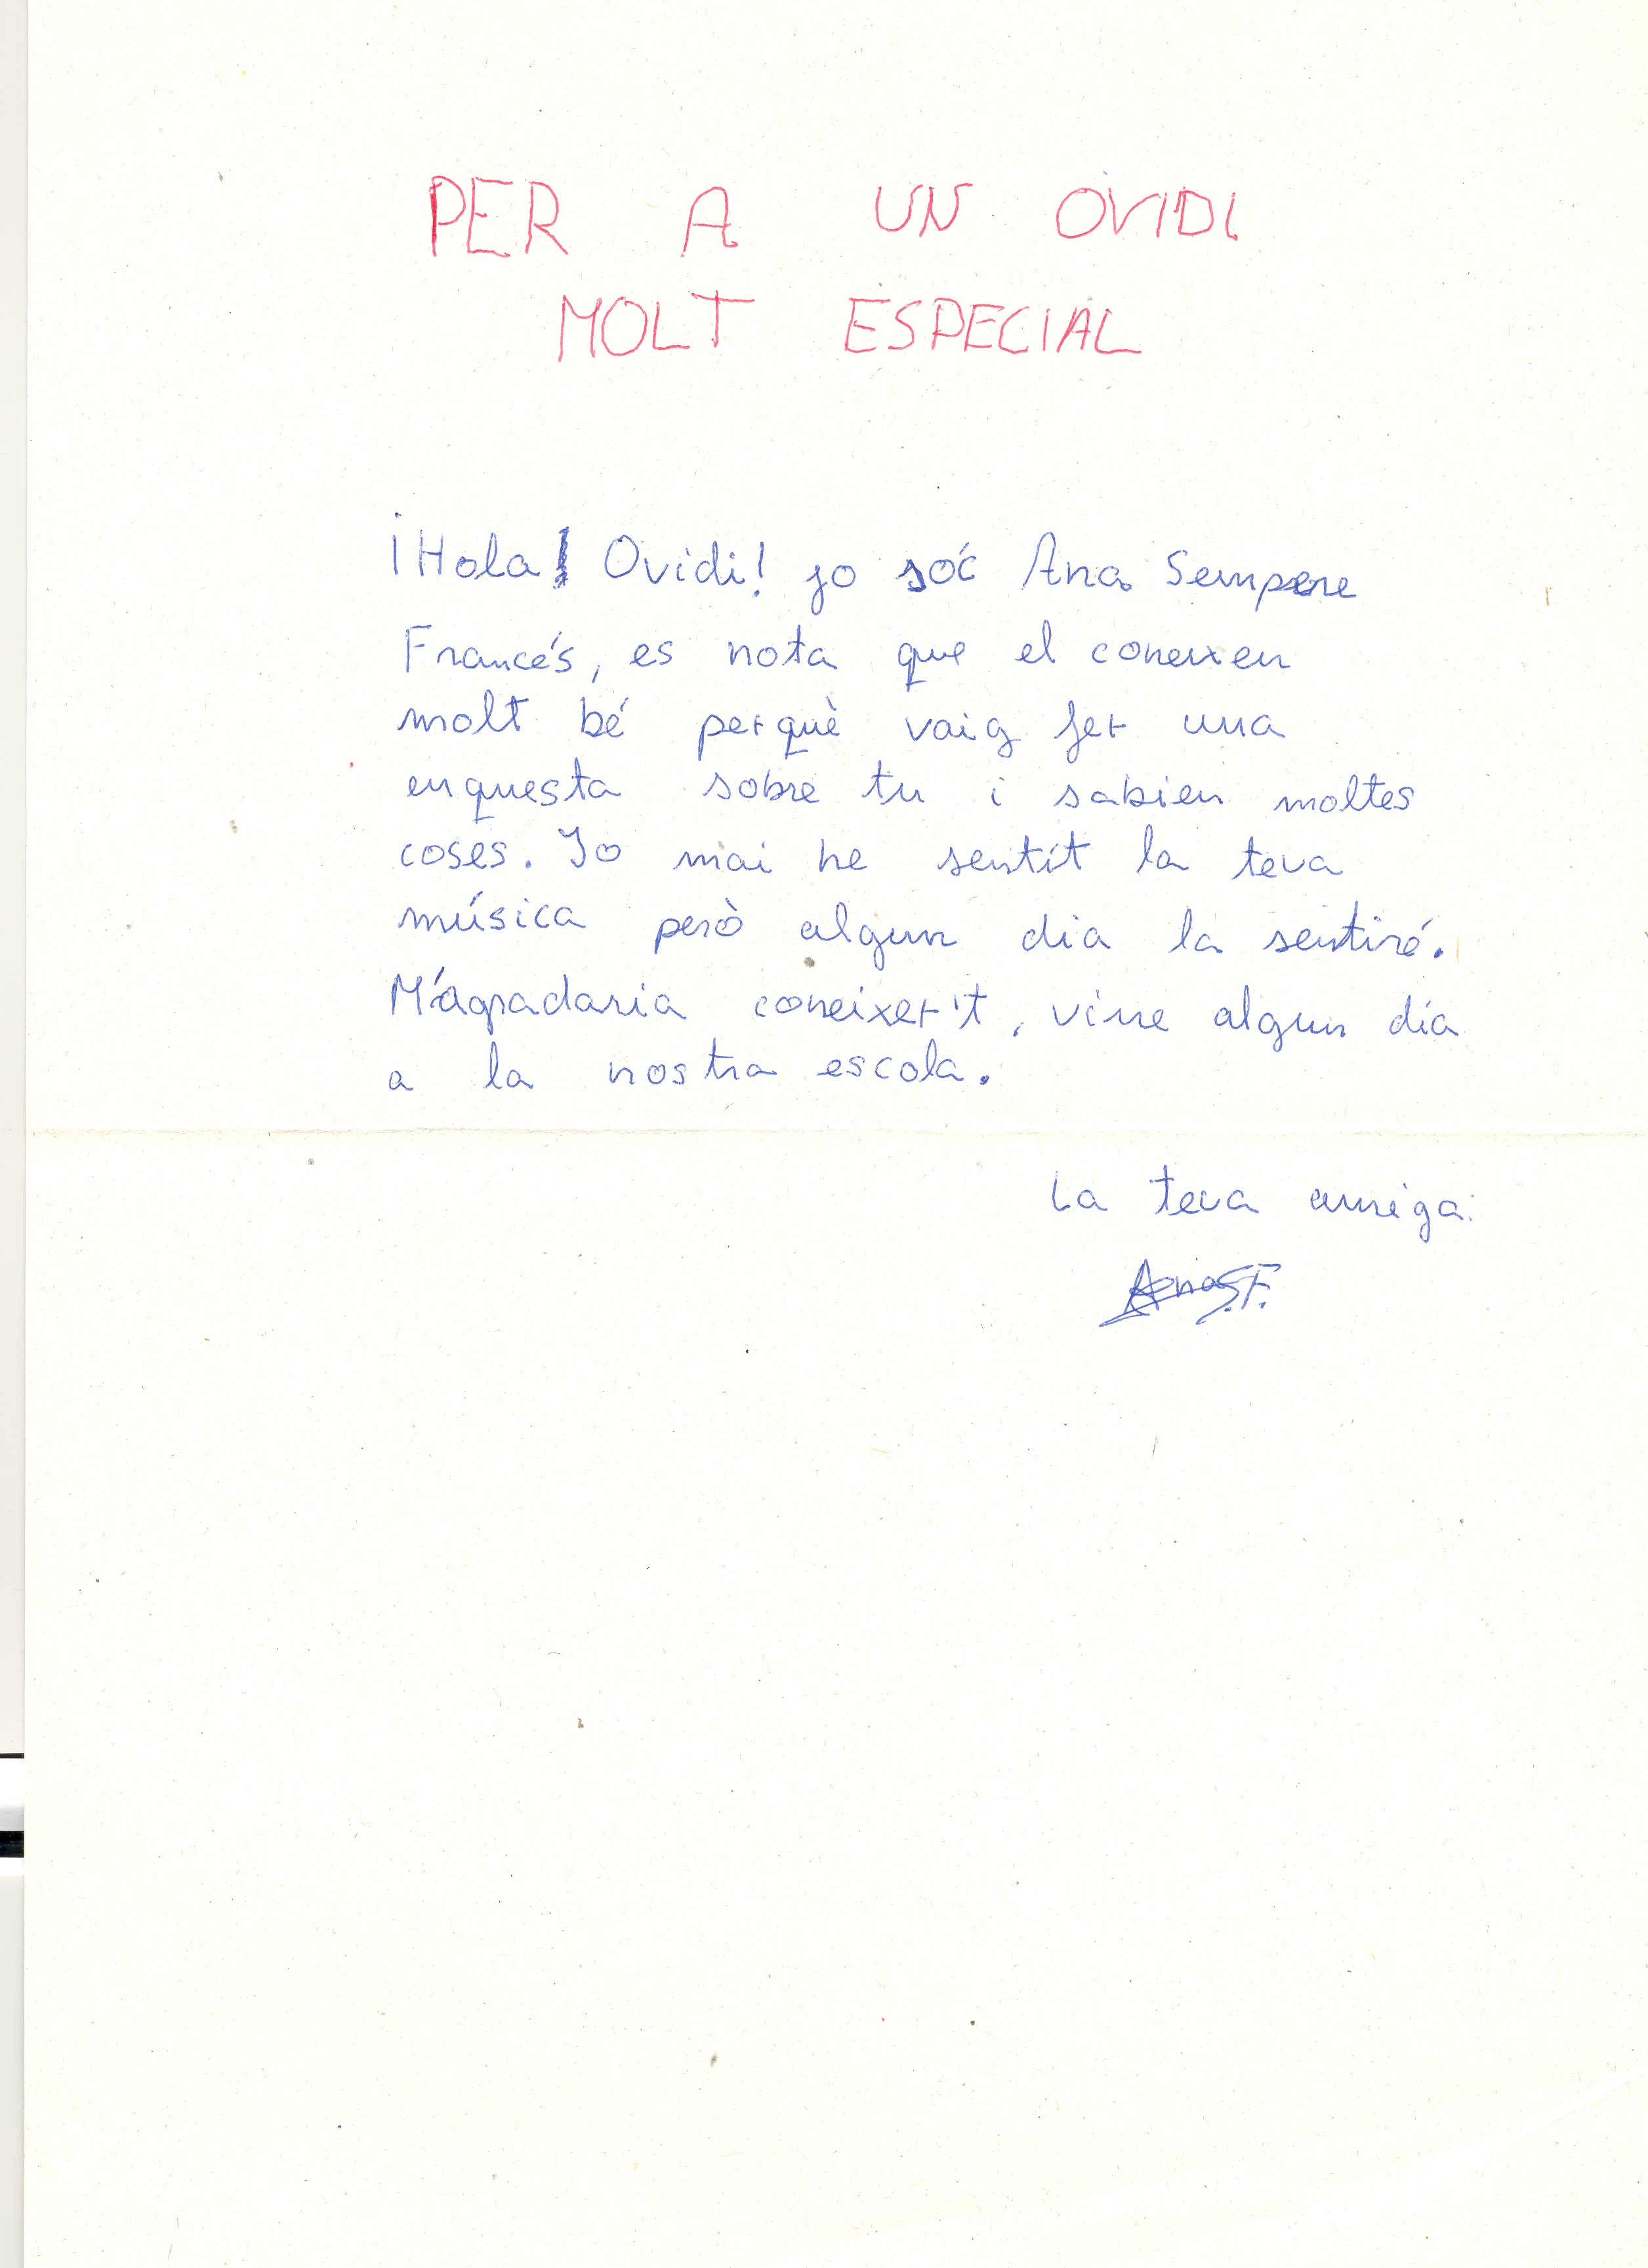 PER A UN OVIDI
MOLT ESPECIAL
¡Hola! Ovidi! jo sóc Ana Sempere
Francés, es nota que el coneixen
molt bé perquè vaig fer una
enquesta sobre tu i sabien moltes
coses. Jo mai he sentit la teva
música però algun dia la sentiré.
M'agradaria coneixer't, vine algun día
a la nostra escola.
La teva amiga:
Ana S.F.